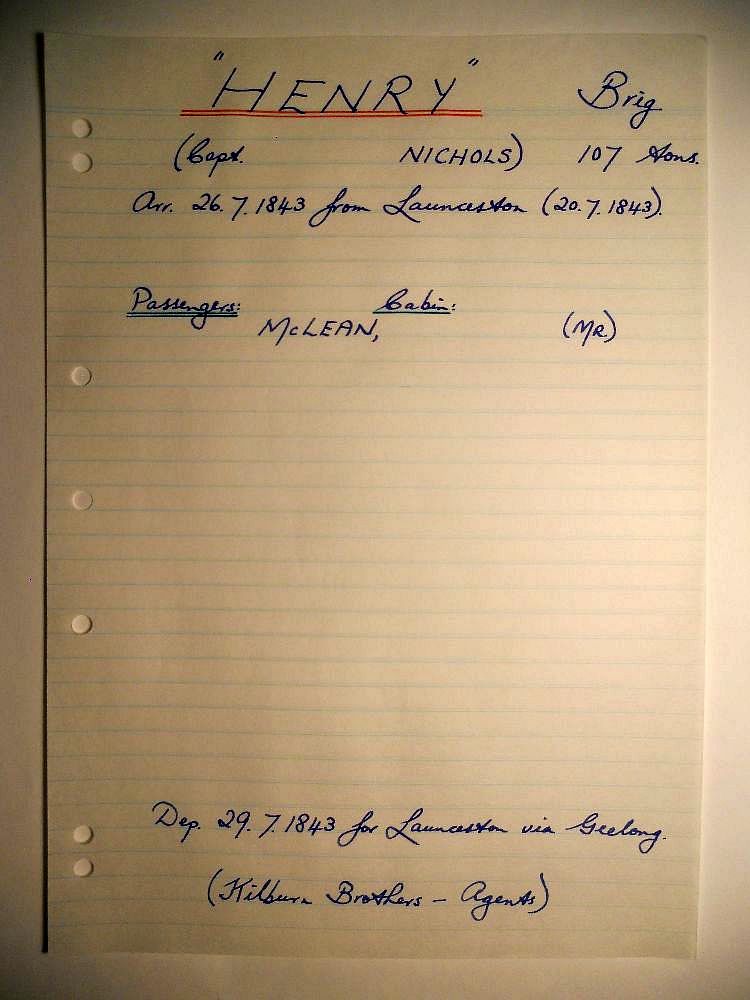 "HENRY" Brig
(Capt. NICHOLS) 107 tons.
Arr. 26.7.1843 from Launceston (20.7.1843).
Passengers: Cabin:
McLEAN, (MR)
Dep. 29.7.1843 for Launceston via Geelong.
(Kilburn Brothers – Agents)